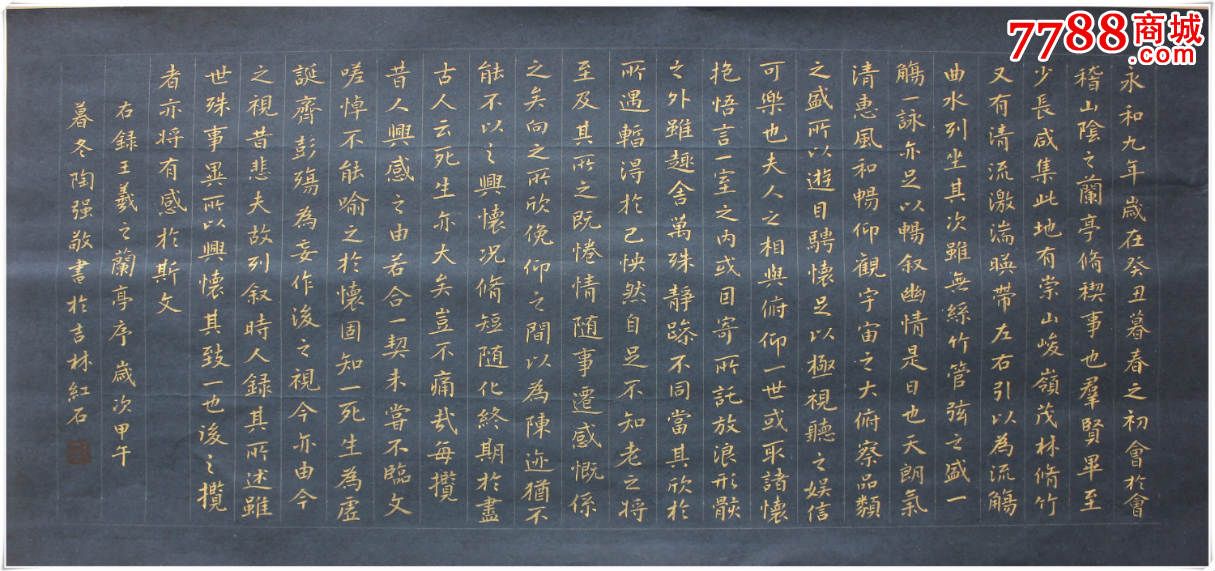 7788商城
.com
永和九年歲在癸丑暮春之初會於會
稽山陰之蘭亭脩禊事也羣賢畢至
少長咸集此地有崇山峻嶺茂林脩竹
又有清流激湍暎帶左右引以為流觴
曲水列坐其次雖無絲竹管弦之盛一
觴一詠亦足以暢叙幽情是日也天朗氣
清惠風和暢仰觀宇宙之大俯察品類
之盛所以遊目騁懷足以極視聽之娱信
可樂也夫人之相與俯仰一世或取諸懷
抱悟言一室之內或因寄所託放浪形骸
之外雖趣舍萬殊靜躁不同當其欣於
所遇蹔得於己怏然自足不知老之將
至及其所之既惓情随事遷感慨係
之矣向之所欣俛仰之間以為陳迹猶不
能不以之興懷况脩短随化終期於盡
古人云死生亦大矣豈不痛哉每攬
昔人興感之由若合一契未嘗不臨文
嗟悼不能喻之於懷固知一死生為虛
誕齊彭殤為妄作後之視今亦由今
之視昔悲夫故列叙時人録其所述雖
世殊事異所以興懷其致一也後之攬
者亦将有感於斯文
右録王羲之蘭亭序歲次甲午
暮冬陶强敬書於吉林紅石